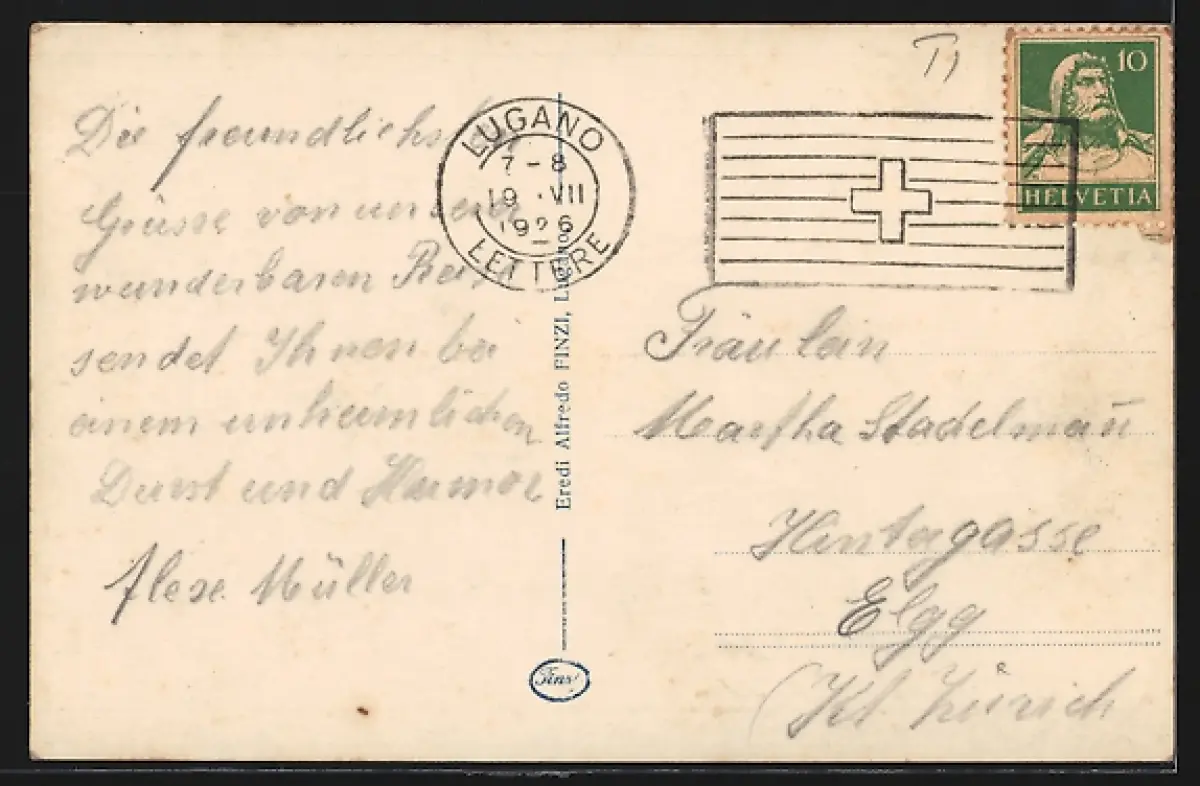 Die freundlichs
Grüsse von unserer
wunderbaren Rei
sendet Ihnen bei
einem unheimlichen
Durst und Humor
Müller
LUGANO
7-8
19.VII
1926
LETTERE
Eredi Alfredo FINZI, Lugano
Finzi
T1
10
HELVETIA
Fräulein
Martha Stadelmañ
Hintergasse
Elgg
(Kt. Zürich